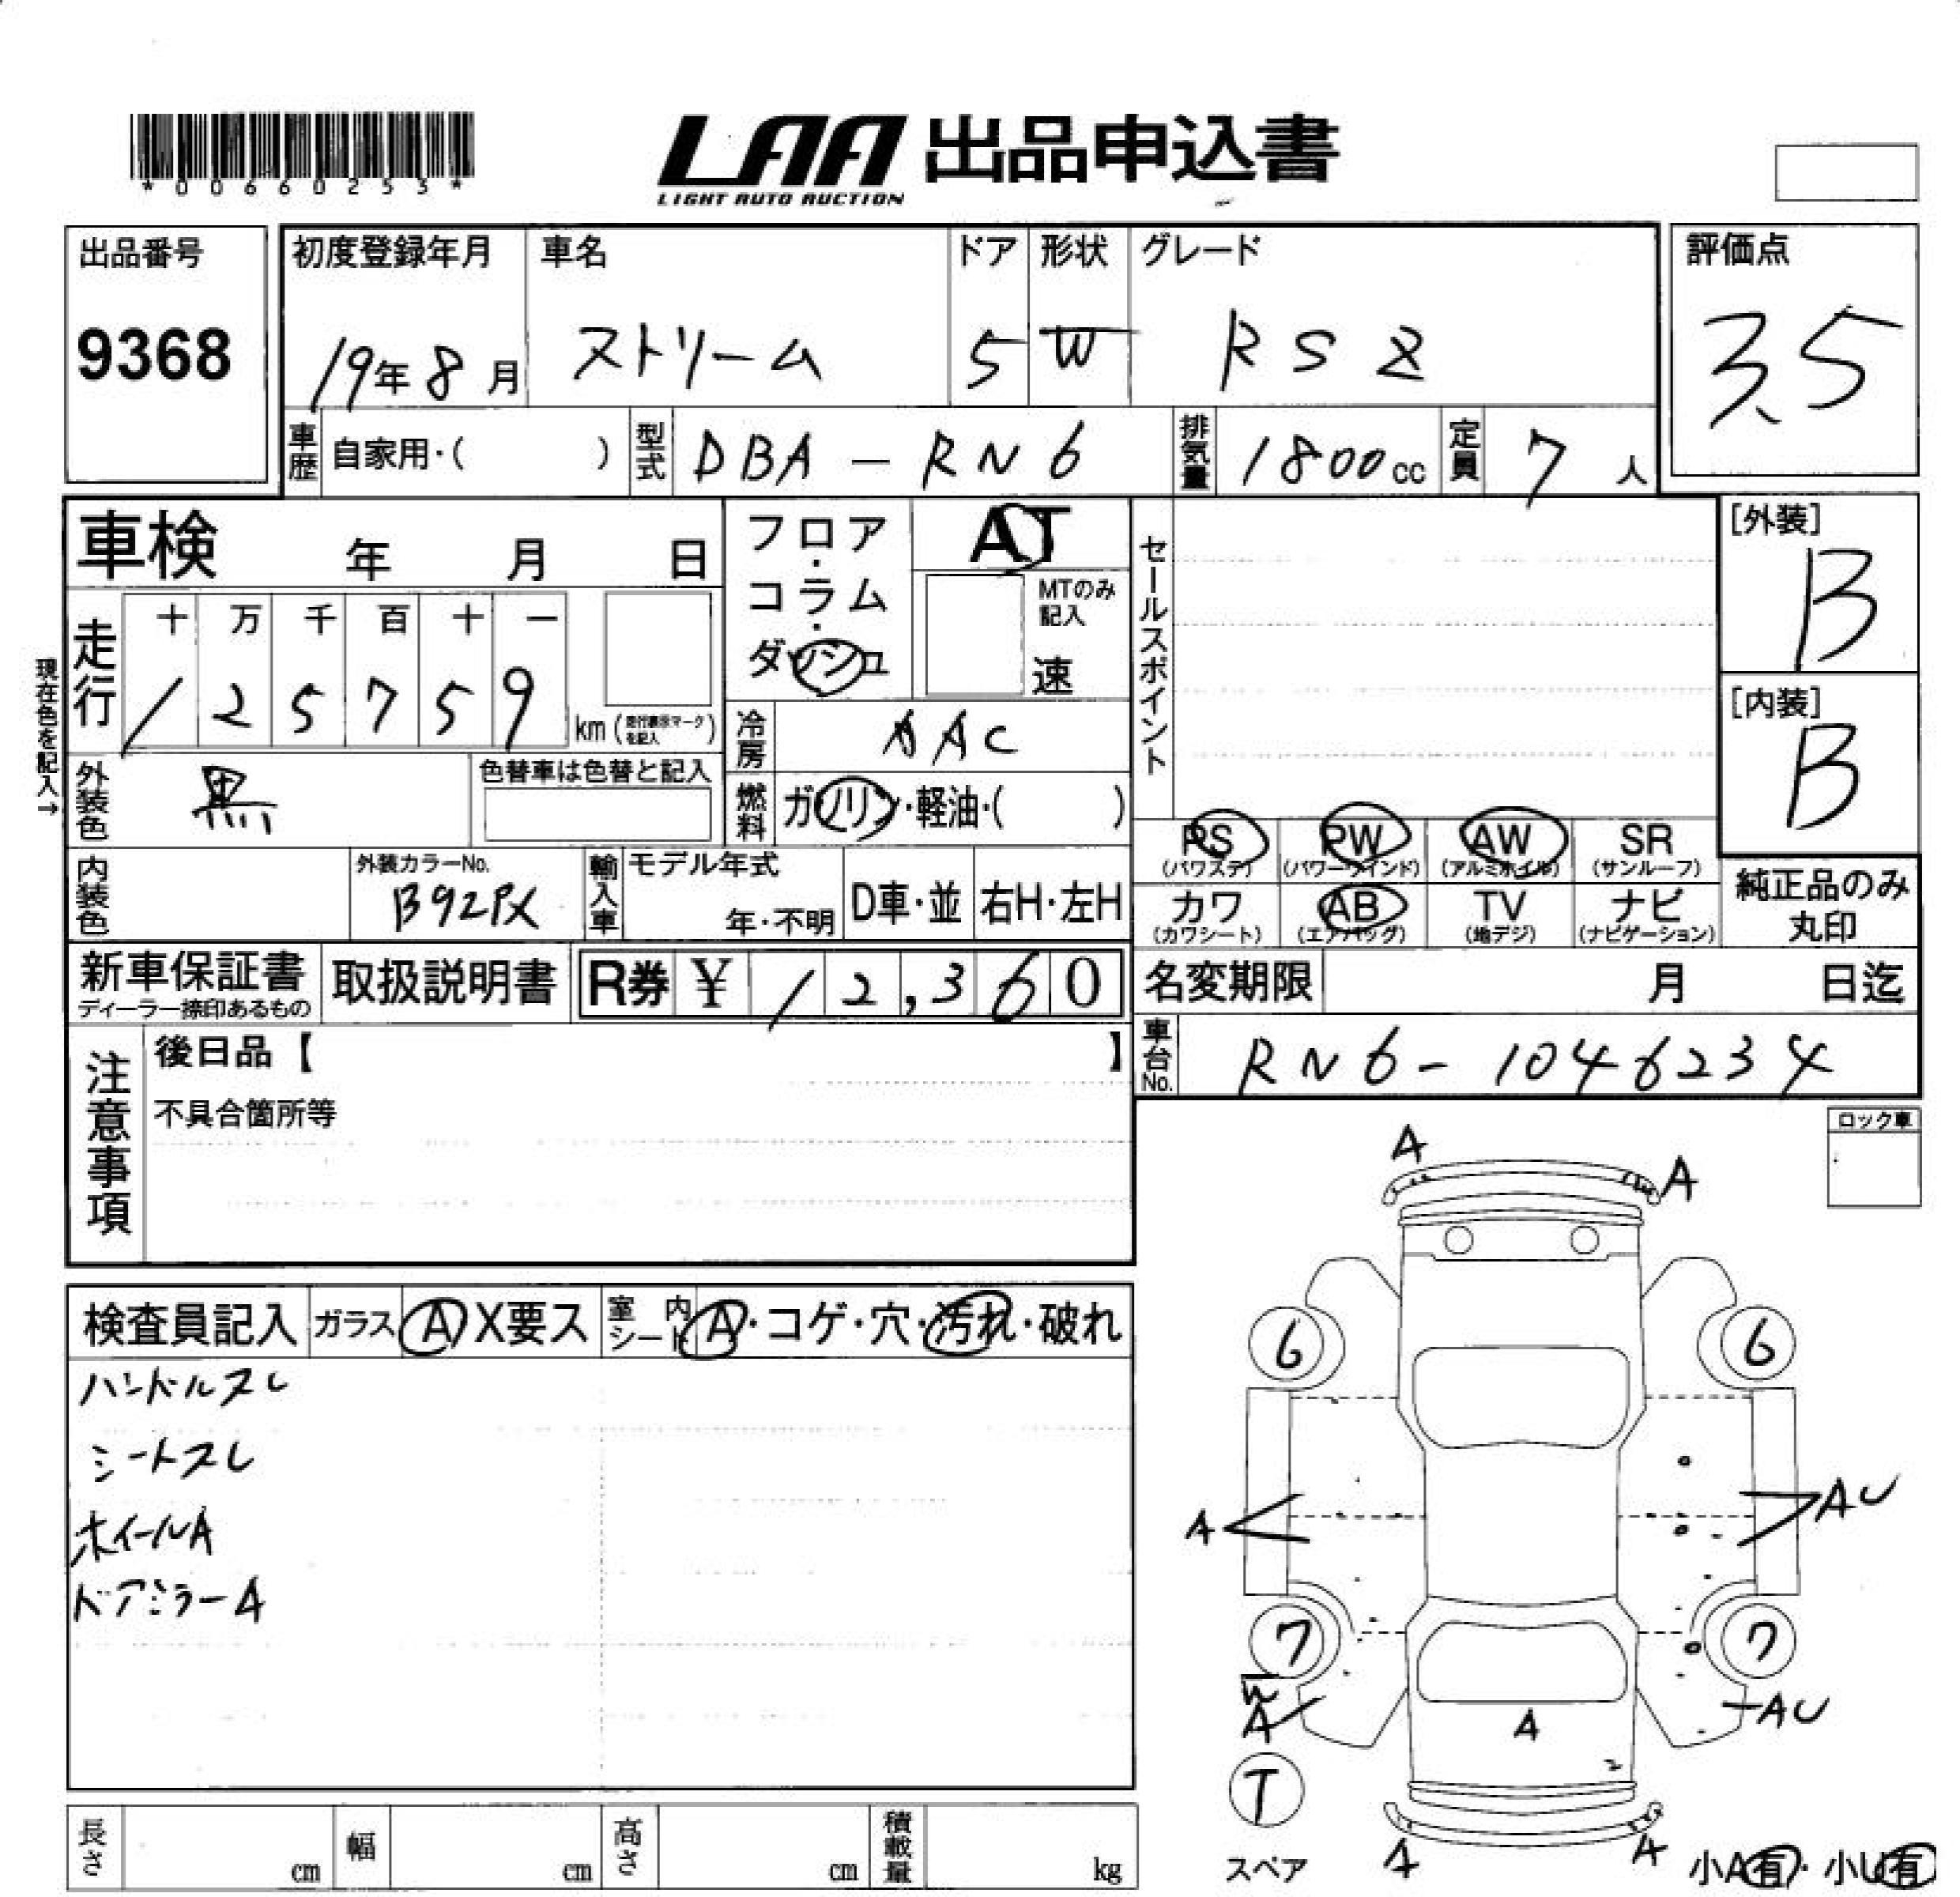 *00660253*
LAA 出品申込書
LIGHT AUTO AUCTION
出品番号
9368
初度登録年月
19年 8月
車名
ストリーム
ドア
5
形状
W
グレード
RSZ
評価点
3.5
車歴 自家用・( )
型式 DBA-RN6
排気量 1800cc
定員 7人
車検 年 月 日
フロア・コラム・ダッシュ
AT
MTのみ記入
速
セールスポイント
[外装]
B
[内装]
B
現在色を記入→
走行
十 万 千 百 十 一
1 2 5 7 5 9
km(走行表示マークを記入)
冷房 AAC
外装色 黒
色替車は色替と記入
燃料 ガソリン・軽油・( )
PS (パワステ)
PW (パワーウインド)
AW (アルミホイル)
SR (サンルーフ)
カワ (カワシート)
AB (エアバッグ)
TV (地デジ)
ナビ (ナビゲーション)
純正品のみ丸印
内装色
外装カラーNo.
B92PX
輸入車
モデル年式
年・不明
D車・並
右H・左H
新車保証書
ディーラー捺印あるもの
取扱説明書
R券 ¥ 12,360
名変期限 月 日迄
車台No. RN6-1046234
注意事項
後日品【 】
不具合箇所等
ロック車
検査員記入
ガラス A X要ス
室内シート A・コゲ・穴・汚れ・破れ
ハンドルスレ
シートスレ
ホイールA
ドアミラーA
A
A
6
6
A
AU
7
7
W
A
AU
A
T
スペア
A
A
小A有・小U有
長さ cm
幅 cm
高さ cm
積載量 kg